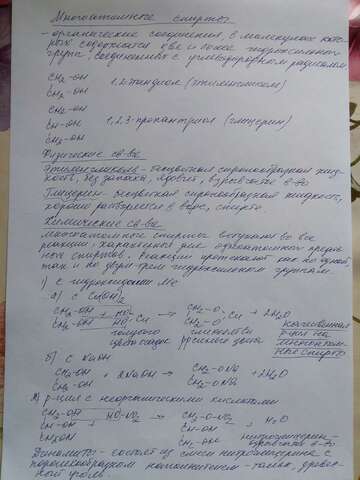 Многоатомные спирты
- органические соединения в молекулах которых содержатся две и более гидроксильных
групп, соединенных с углеводородным радикалом.
CH₂-OH
CH₂-OH
1,2-диол (этиленгликоль)
CH₂-OH
CH-OH
CH₂-OH
1,2,3-пропантриол (глицерин)
Физические св-ва
Этиленгликоль - бесцветная сиропообразная жид-
кость, без запаха, ядовит,
Глицерин - бесцветная сиропообразная жидкость,
хорошо растворяется в воде, спирте
Химические св-ва
Многоатомные спирты вступают во все
реакции, характерные для одноатомных предель-
ных спиртов. Реакции протекают как по одной,
так и по двум-трем гидроксильным группам.
1) с гидроксидами Me
а) с Cu(OH)₂
CH₂-OH HO CH₂-O
CH₂-OH + HO Cu → CH₂-O Cu + 2H₂O
голубого цвета осадок
качественная
р-ция на
многоатом-
ные спирты
б) с NaOH
CH₂-OH CH₂-ONa
CH₂-OH + 2NaOH → CH₂-ONa + 2H₂O
2) р-ция с неорганическими кислотами
CH₂-OH HO-NO₂ CH₂-O-NO₂
CH-OH + → CH-OH + H₂O
CH₂OH CH₂-OH
нитроглицерин -
Динамит - состоит из смеси нитроглицерина с
порошкообразным наполнителем - тальк, древес-
ный уголь.